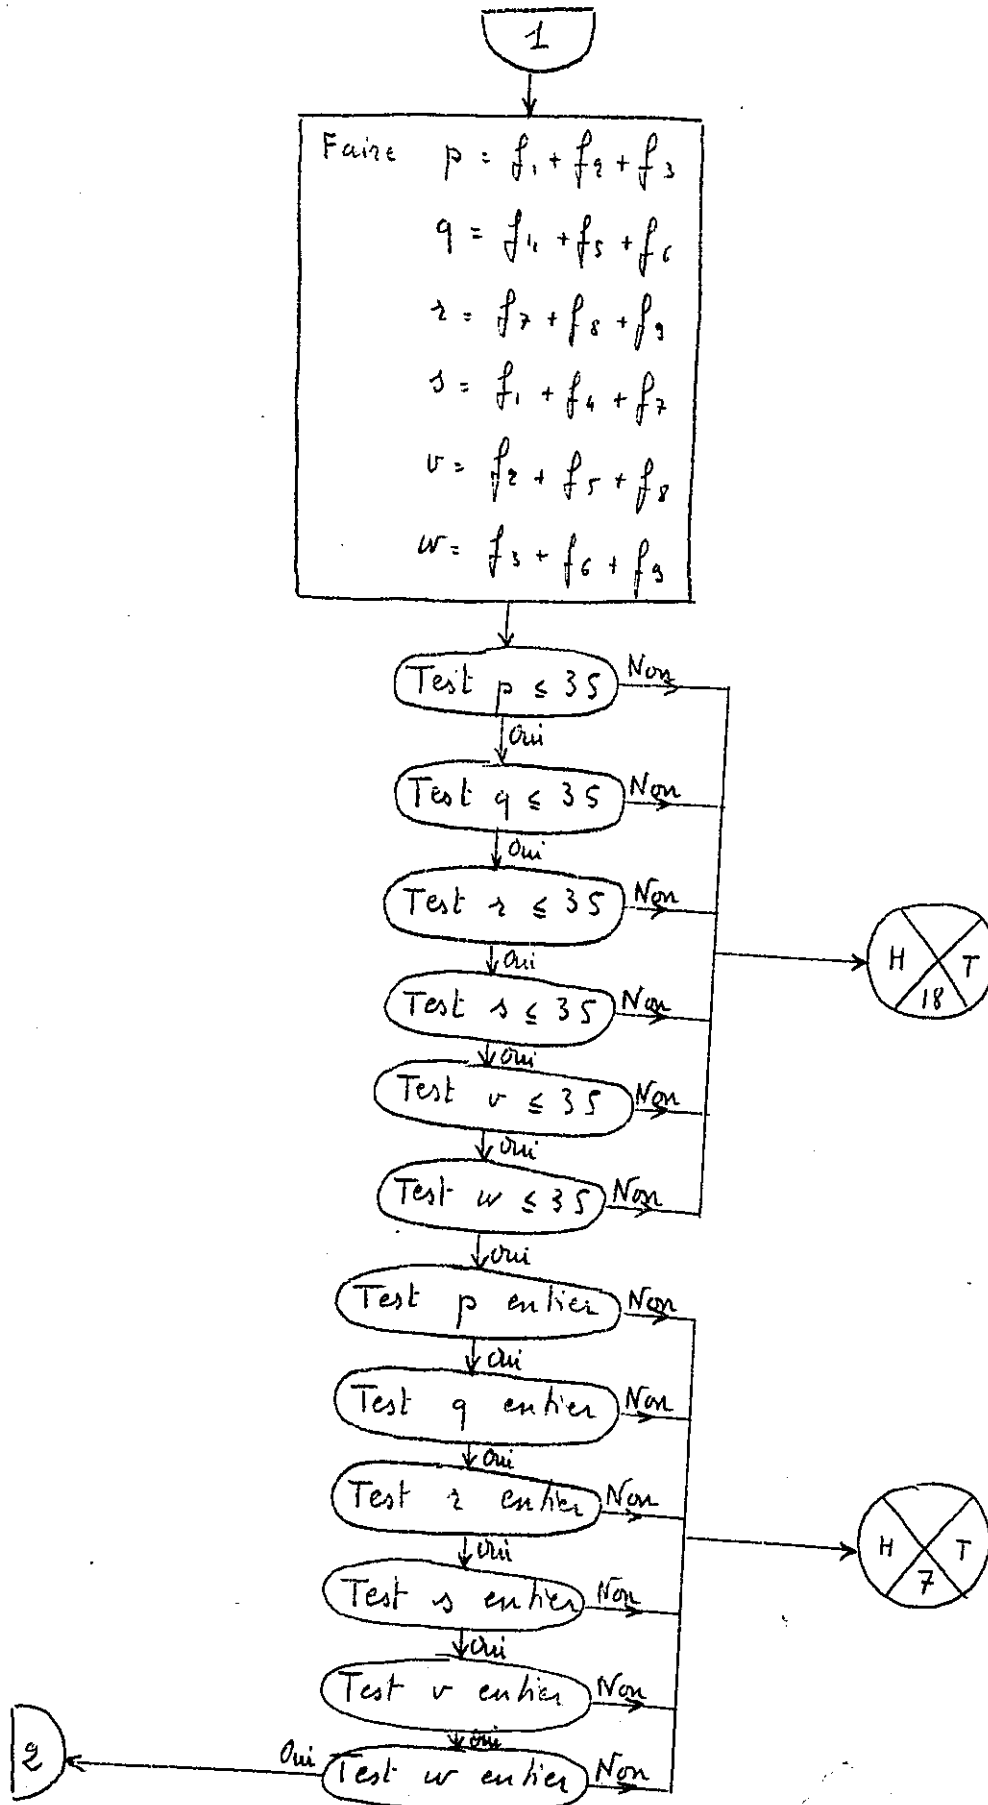 1
Faire p = f₁ + f₂ + f₃
q = f₄ + f₅ + f₆
r = f₇ + f₈ + f₉
s = f₁ + f₄ + f₇
v = f₂ + f₅ + f₈
w = f₃ + f₆ + f₉
Test p ≤ 35 Non
Oui
Test q ≤ 35 Non
Oui
Test r ≤ 35 Non
Oui
H T
18
Test s ≤ 35 Non
Oui
Test v ≤ 35 Non
Oui
Test w ≤ 35 Non
Oui
Test p entier Non
Oui
Test q entier Non
Oui
Test r entier Non
Oui
H T
7
Test s entier Non
Oui
Test v entier Non
Oui
2 Oui Test w entier Non